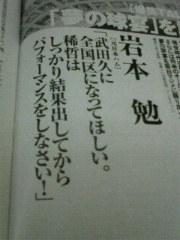 「夢の球宴」を
岩本 勉
「武田久に
全国区になってほしい。
稀哲は
しっかり結果出してから
パフォーマンスをしなさい！」